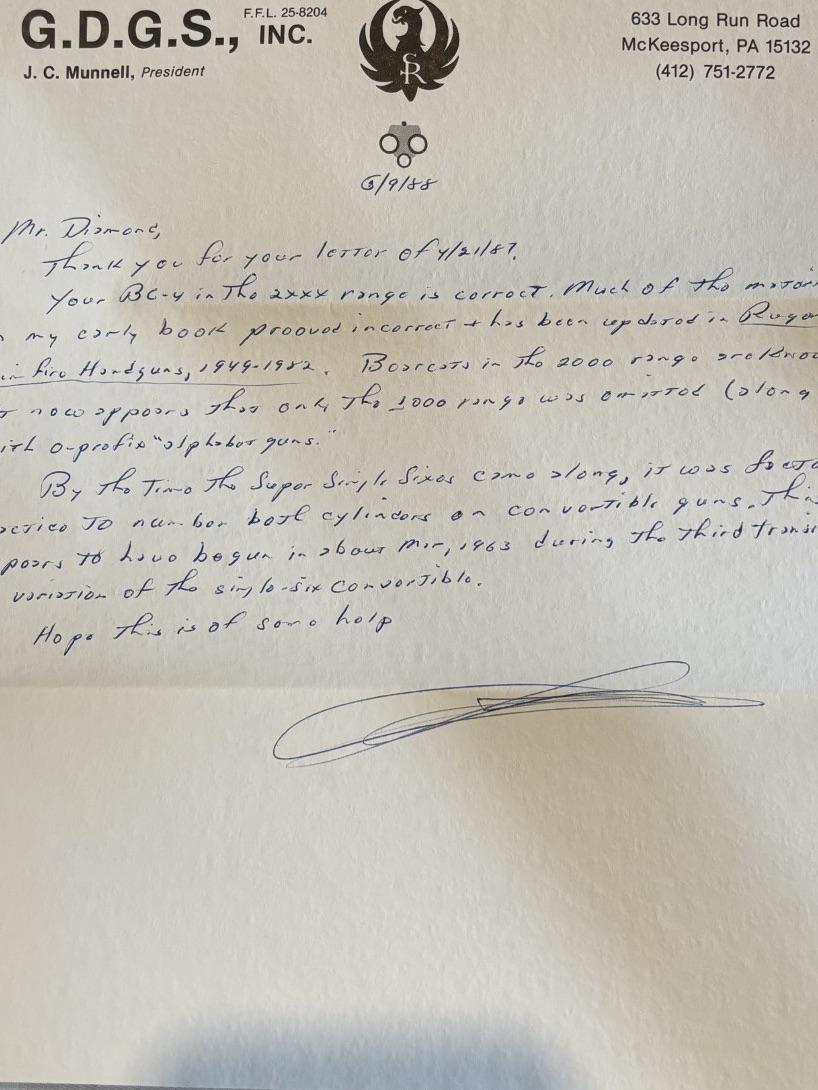 G.D.G.S., INC.
F.F.L. 25-8204
J. C. Munnell, President
SR
633 Long Run Road
McKeesport, PA 15132
(412) 751-2772
/9/88
Mr. Diamond,
Thank you for your letter of 4/21/87.
Your BC-4 in the 2xxx range is correct. Much of the
my early book prooved incorrect + has been updated in Ruger
Handguns, 1949-1982. Bearcats in the 2000 range are
now appears that only the 1000 range was omitted (along
o-prefix "alphabet guns."
By the time the Super Single Sixes came along, it was
to number both cylinders on convertible guns.
to have begun in about Mar, 1963 during the third
variation of the single-six convertible.
Hope this is of some help